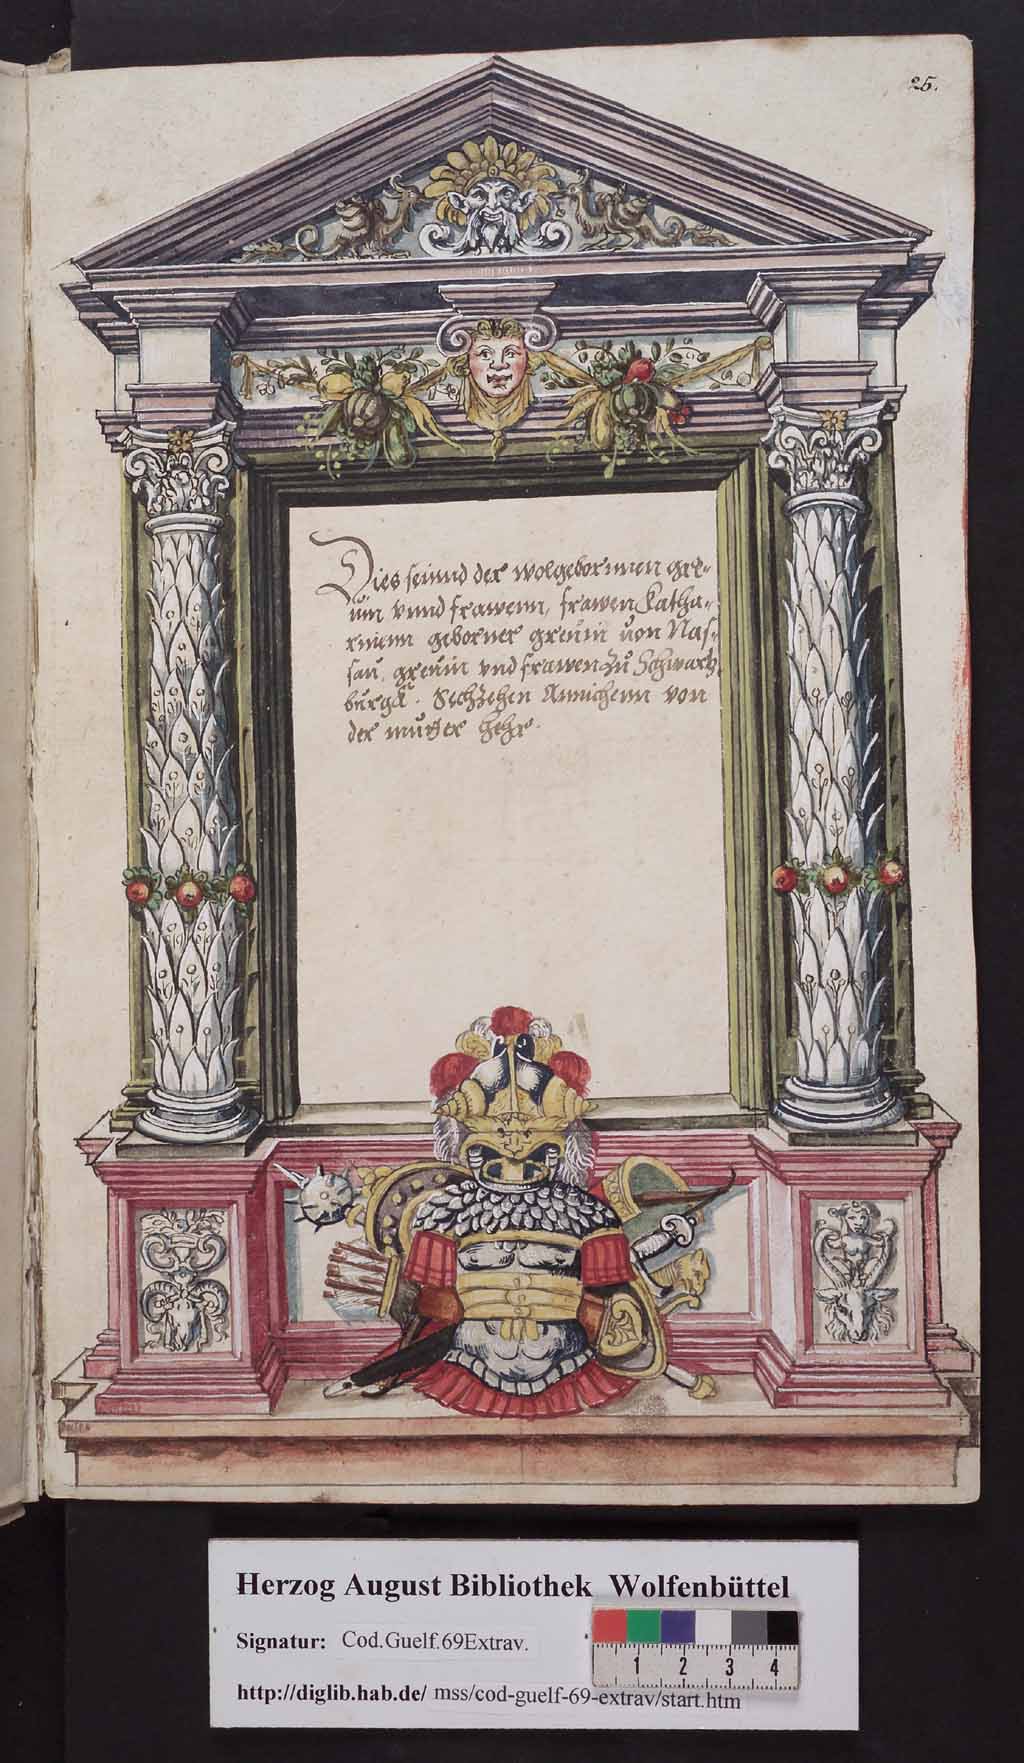 25.
Dies seinnd der wolgebornnen gre-
uin vnnd frawenn, frawen Katha-
rinenn geborner greuin uon Nas-
sau, greuin vnd frawen zu Schwartz
burgk. Sechzehen Annichenn von
der mutter hehr.
Herzog August Bibliothek Wolfenbüttel
Signatur: Cod.Guelf.69Extrav.
1 2 3 4
http://diglib.hab.de/ mss/cod-guelf-69-extrav/start.htm